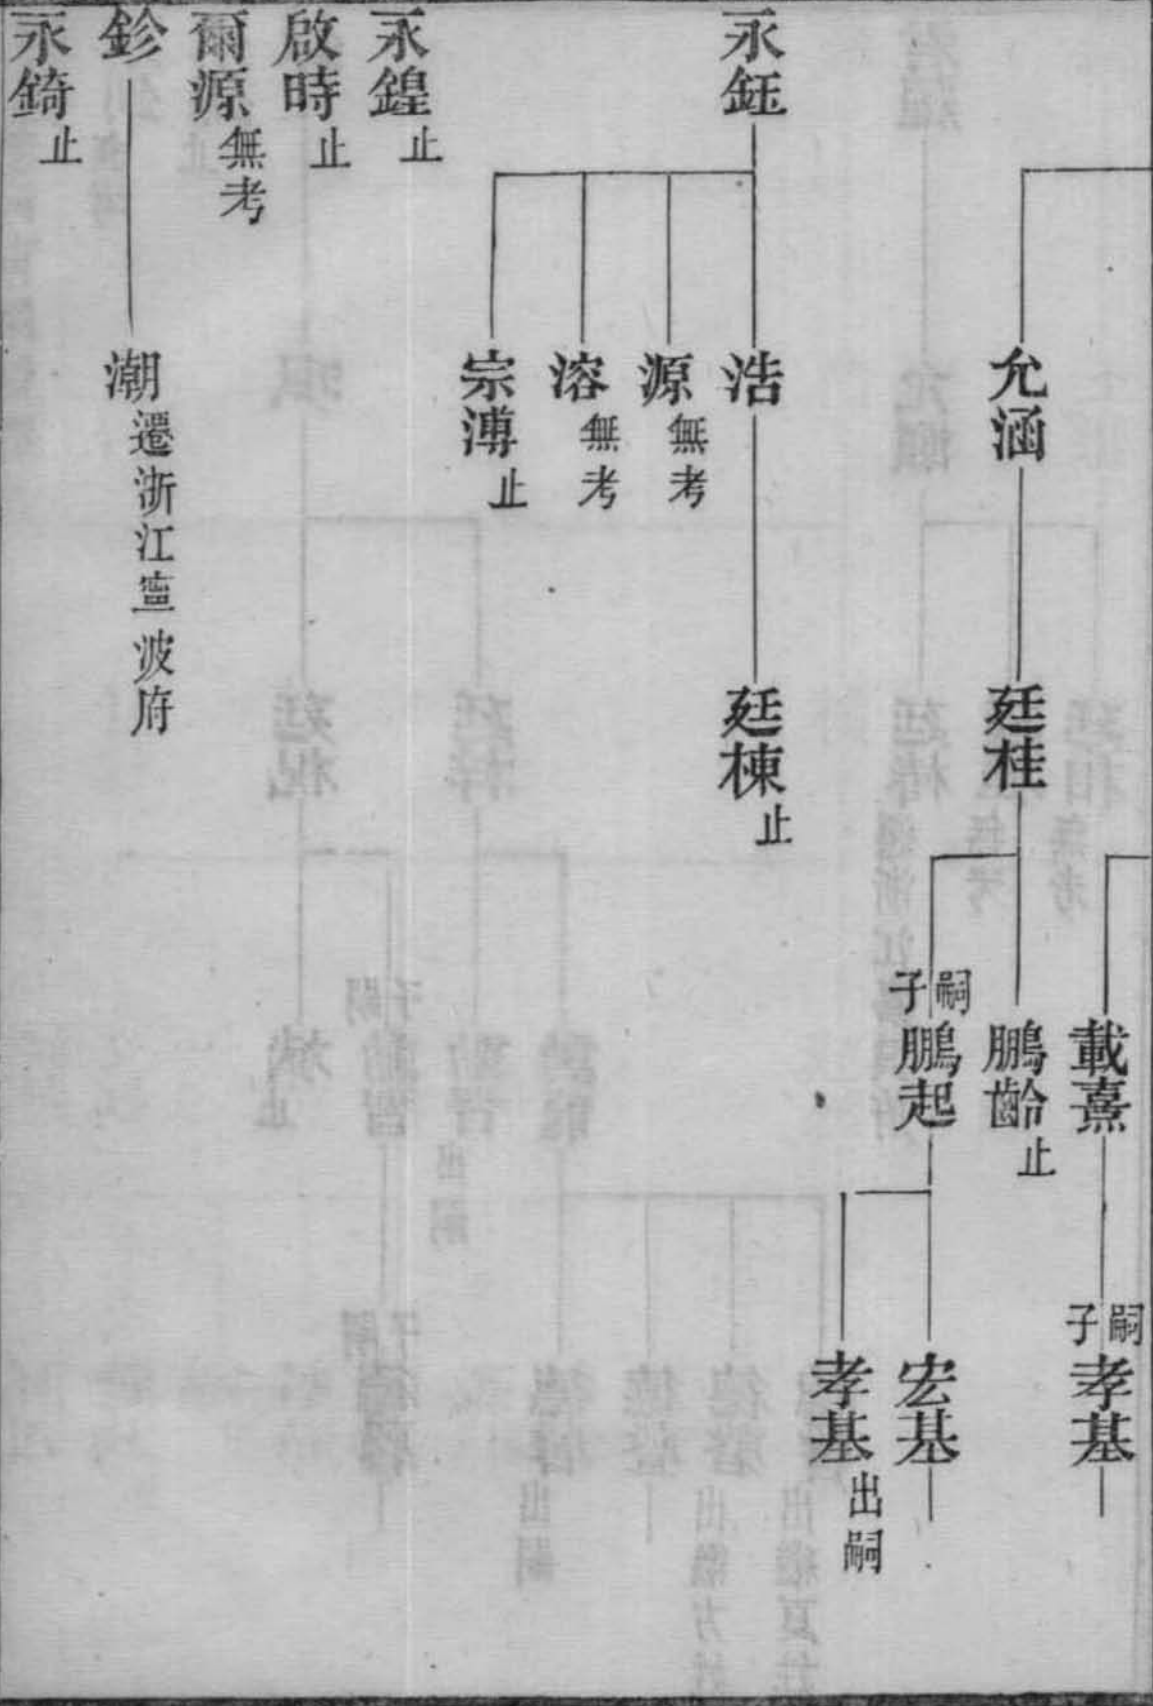 載熹
嗣子
孝基
允涵
廷桂
鵬齡 止
嗣子
鵬起
宏基
孝基 出嗣
永鈺
浩
廷棟 止
源 無考
溶 無考
宗溥 止
永鍠 止
啟時 止
爾源 無考
鉁
潮 遷浙江寧波府
永錡 止